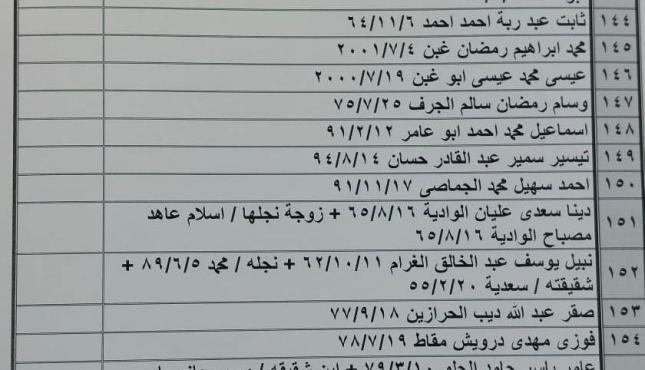 ١٤٤ ثابت عبد ربة احمد احمد ٦٤/١١/٦
١٤٥ محمد ابراهيم رمضان غبن ٢٠٠١/٧/٤
١٤٦ عيسى محمد عيسى ابو غبن ٢٠٠٠/٧/١٩
١٤٧ وسام رمضان سالم الجرف ٧٥/٧/٢٥
١٤٨ اسماعيل محمد احمد ابو عامر ٩١/٢/١٢
١٤٩ تيسير سمير عبد القادر حسان ٩٤/٨/١٤
١٥٠ احمد سهيل محمد الجماصى ٩١/١١/١٧
١٥١ دينا سعدى عليان الوادية ٦٥/٨/١٦ + زوجة نجلها / اسلام عاهد
مصباح الوادية ٦٥/٨/١٦
١٥٢ نبيل يوسف عبد الخالق الغرام ٦٢/١٠/١١ + نجله / محمد ٨٩/٦/٥ +
شقيقته / سعدية ٥٥/٢/٢٠
١٥٣ صقر عبد الله ديب الحرازين ٧٧/٩/١٨
١٥٤ فوزى مهدى درويش مقاط ٧٨/٧/١٩